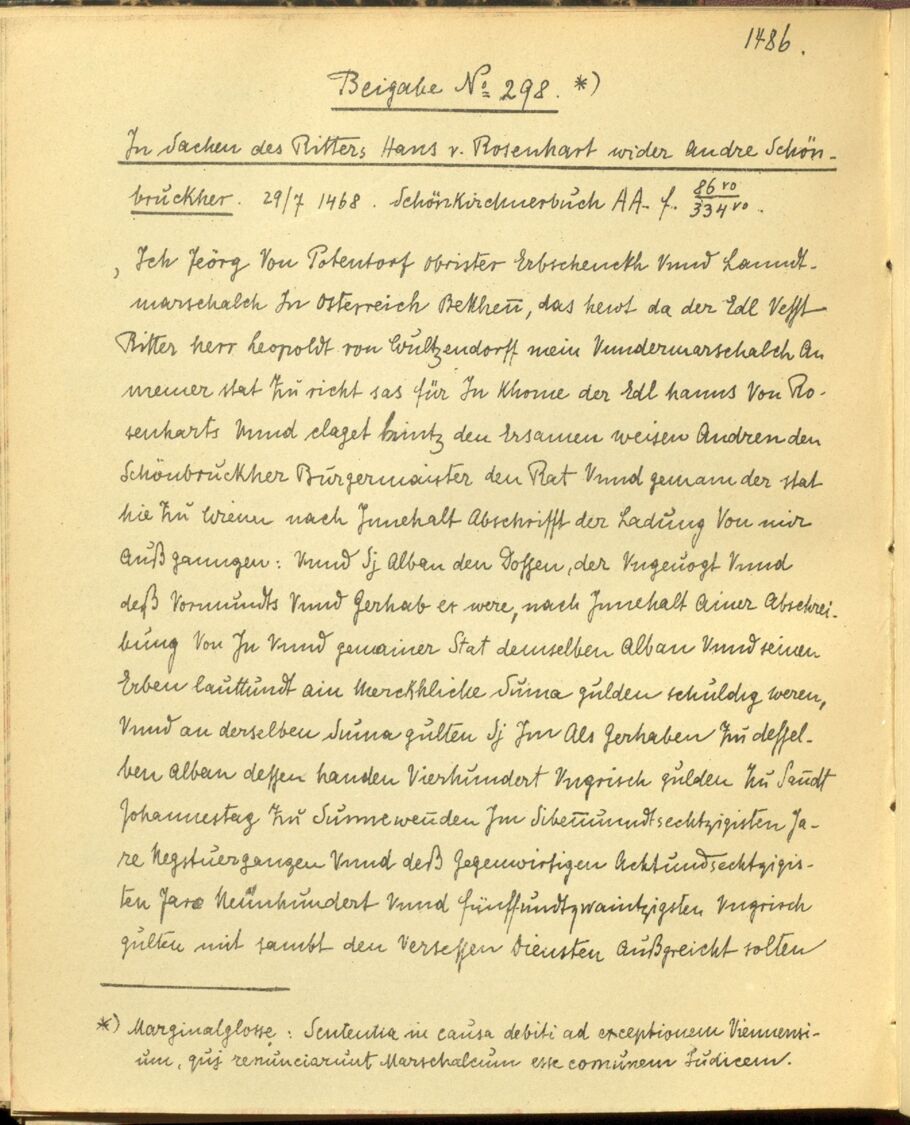 1486.
Beigabe No 298. *)
In Sachen des Ritters Hans v. Rosenhart wider Andre Schön-
bruckher. 29/7 1468. Schönkirchnerbuch AA. f. 86 vo / 334 vo.
, Ich Jeörg Von Potendorf obrister Erbschenckh Vnnd Lanndt-
marschalch In Osterreich Bekhen̄, das hewt da der Edl Vesst
Ritter herr Leopoldt von Wultzendorff mein Vnndermarschalch An
meiner stat Zu richt sas für In Khome der Edl hanns Von Ro-
senharts Vnnd claget hintz den Ersamen weisen Andren den
Schönbruckher Burgermaister den Rat Vnnd gemain der stat
hie Zu Wienn nach Innehalt Abschrifft der Ladung Von mir
Außganngen: Vnnd Sj Alban den Dossen, der Vngeuogt Vnnd
deß Vormundts Vnnd Gerhab er were, nach Innehalt Ainer Abschrei-
bung Von In Vnnd gemainer Stat demselben Alban Vnnd seinen
Erben lauttundt ain Merckhliche Suma gulden schuldig weren,
Vnnd an derselben Suma gulten Sj Im Als Gerhaben Zu dessel-
ben Alban dessen handen Vierhundert Vngrisch gulden Zu Sandt
Johannestag Zu Sunnewenden Im Siben̄unndtsechtzigisten Ja-
re Negstuergangen Vnnd deß Gegenwirtigen Achtundsechtzigis-
ten Jare Neunhundert Vnnd fünffundtzwaintzigsten Vngrisch
gulten mit sambt den Versessen Diensten Außgreicht solten
*) Marginalglosse: Sententia in causa debiti ad exceptionem Viennensi-
um, quj renunciarunt Marschalcum esse comunem Judicem.